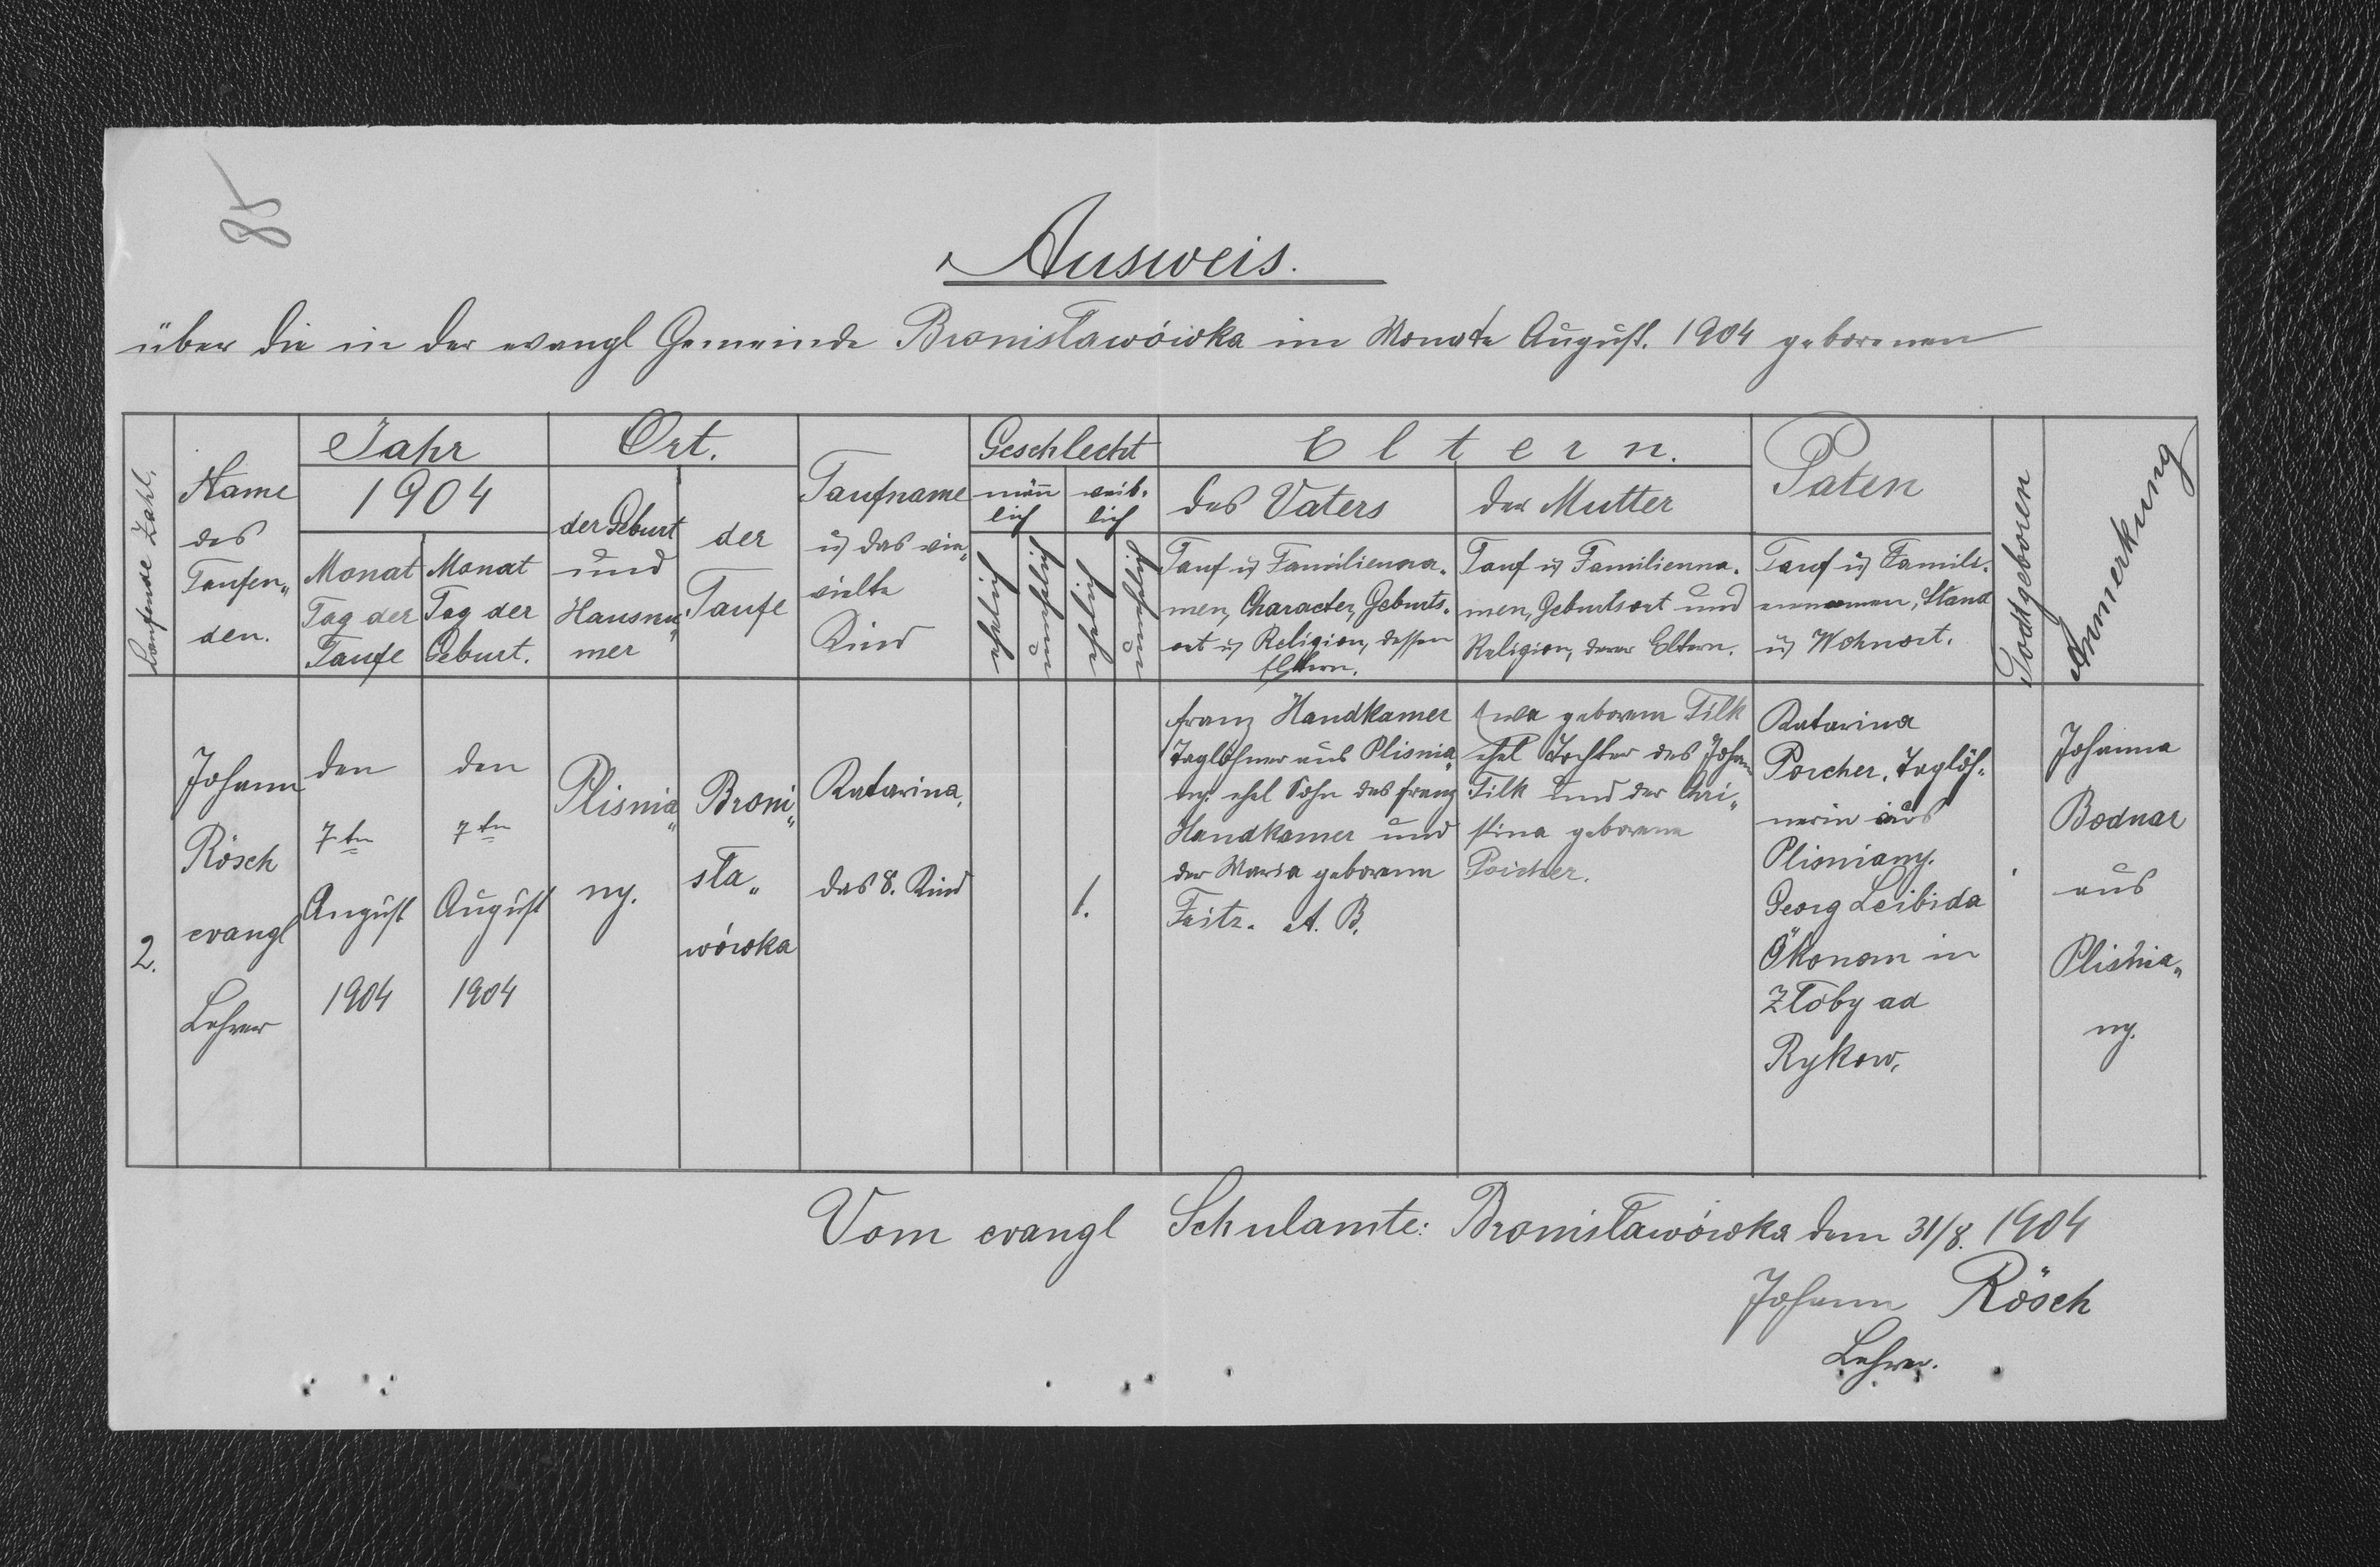 85
Ausweis.
über die in der evangl Gemeinde Bronisławówka im Monate August. 1904 geborenen
Laufende Zahl.
Name
des
Taufen„
den.
Jahr
1904
Monat
Tag der
Taufe
Monat
Tag der
Geburt.
Ort.
der Geburt
und
Hausnu„
mer
der
Taufe
Taufname
u das wie„
vielte
Kind
Geschlecht
männ
lich
weib.
lich
ehelich
unehelich
ehelich
unehelich
Eltern.
des Vaters
der Mutter
Tauf u Familienna.
men, Character, Geburts.
ort u Religion, dessen
Eltern.
Tauf u Familienna.
men, Geburtsort und
Religion, derer Eltern.
Paten
Tauf u Famili.
ennamen, Stand
u Wohnort.
Todtgeboren
Anmerkung
2.
Johann
Rösch
evangl
Lehrer
den
7ten
August
1904
den
7ten
August
1904
Plisnia„
ny.
Broni„
sła„
wówka
Katarina,
das 8. Kind
1.
Franz Handkamer
Taglöhner aus Plisnia„
ny. ehel Sohn des Franz
Handkamer und
der Maria geborenen
Fritz. A. B.
Ewa geborene Filk
ehel Tochter des Johann
Filk und der Chri„
stina geborene
Poicher.
Katarina
Porcher, Taglöh„
nerin aus
Plisniany.
Georg Leibida
Ökonom in
Złoby ad
Rykow,
Johanna
Bodnar
aus
Plisnia„
ny.
Vom evangl Schulamte: Bronisławówka dem 31/8. 1904
Johann Rösch
Lehrer.